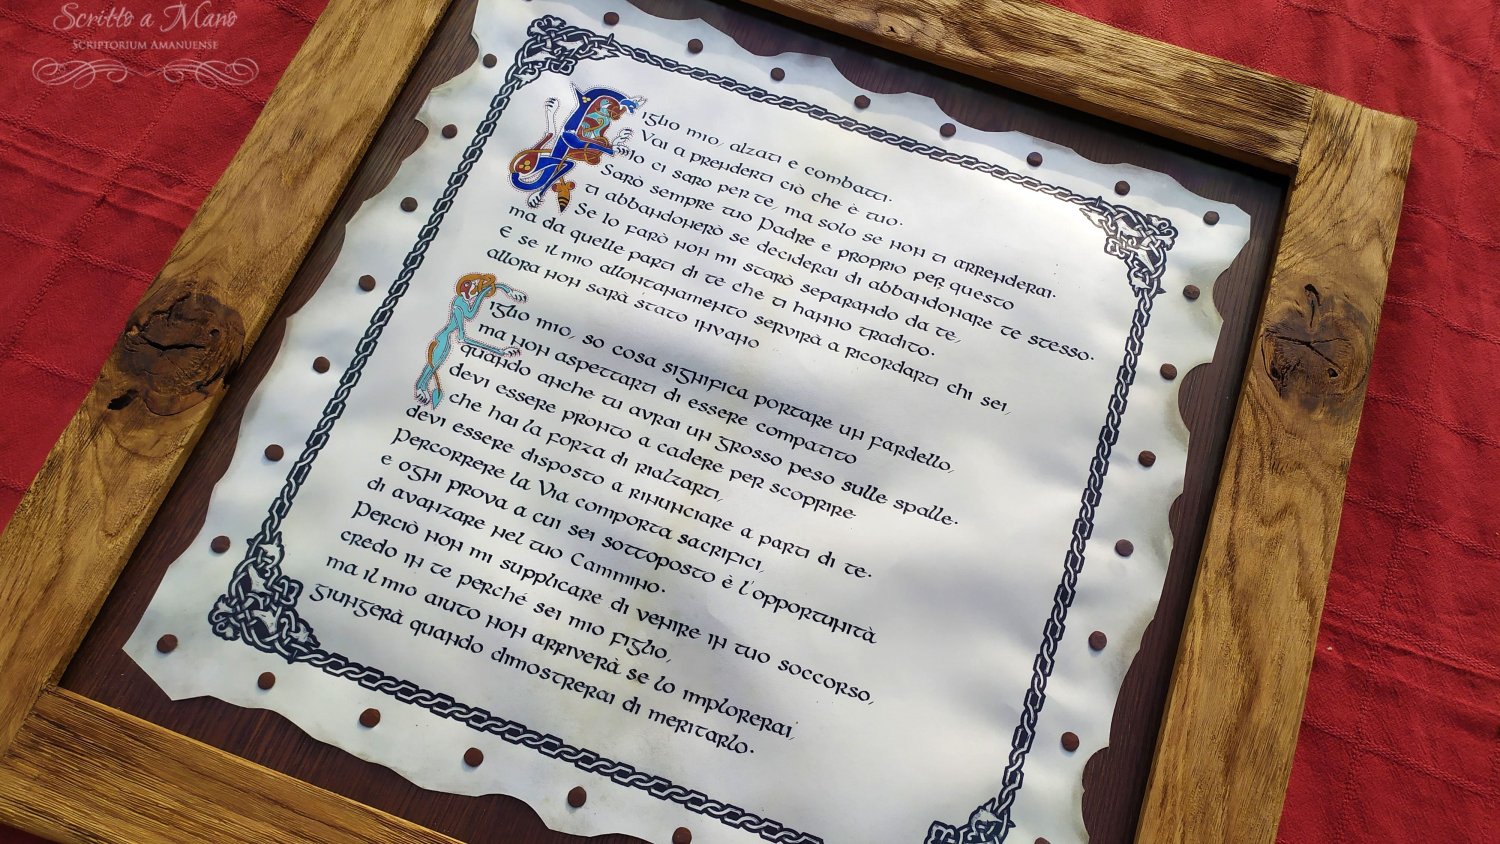 Scritto a Mano
Scriptorium Amanuense
Figlio mio, alzati e combatti.
Vai a prenderti ciò che è tuo.
Io ci saro per te, ma solo se non ti arrenderai.
Sarò sempre tuo Padre e proprio per questo
ti abbandonerò se deciderai di abbandonare te stesso.
Se lo farò non mi starò separando da te,
ma da quelle parti di te che ti hanno tradito.
E se il mio allontanamento servirà a ricordarti chi sei,
allora non sarà stato invano
Figlio mio, so cosa significa portare un fardello,
ma non aspettarti di essere compatito
quando anche tu avrai un grosso peso sulle spalle.
devi essere pronto a cadere per scoprire
che hai la forza di rialzarti,
devi essere disposto a rinunciare a parti di te.
Percorrere la Via comporta sacrifici,
e ogni prova a cui sei sottoposto è l'opportunità
di avanzare nel tuo Cammino.
Perciò non mi supplicare di venire in tuo soccorso,
credo in te perché sei mio figlio,
ma il mio aiuto non arriverà se lo implorerai,
giungerà quando dimostrerai di meritarlo.